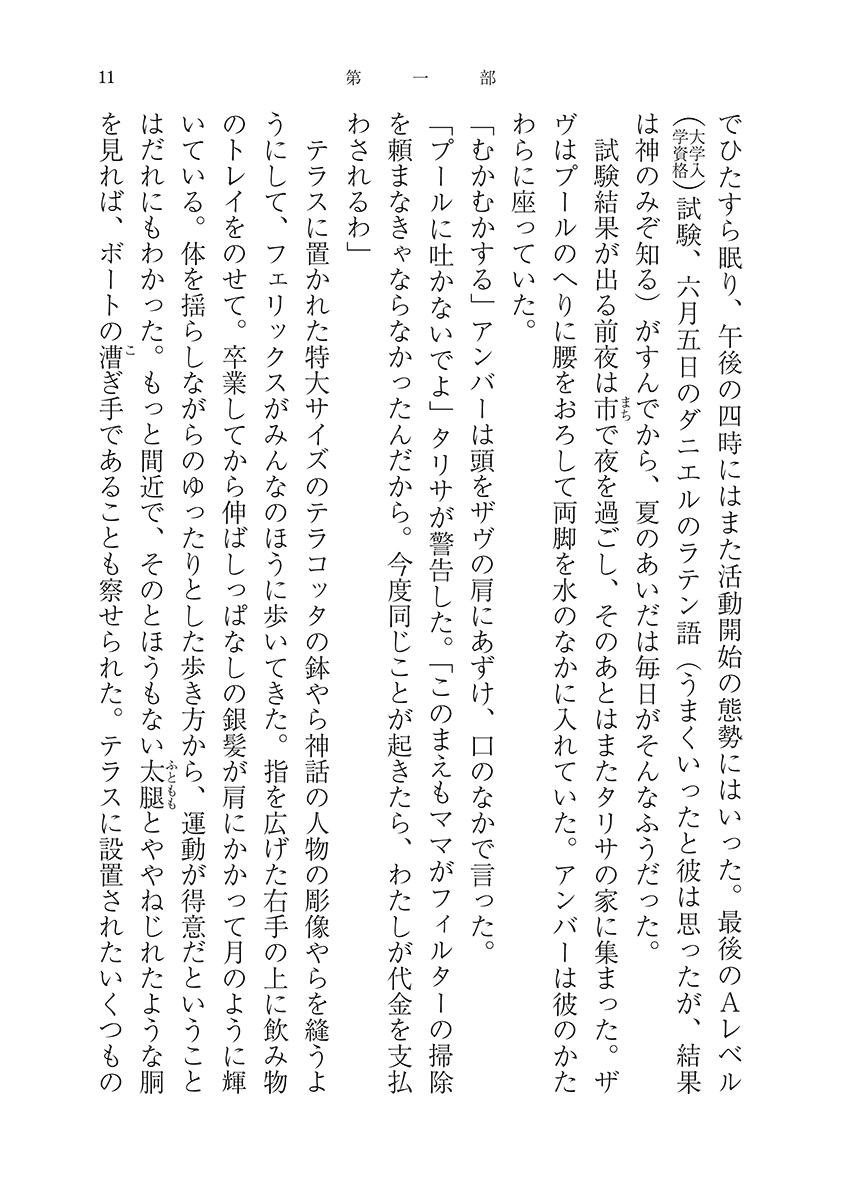 11
第一部
でひたすら眠り、午後の四時にはまた活動開始の態勢にはいった。最後のAレベル
（大学入学資格）試験、六月五日のダニエルのラテン語（うまくいったと彼は思ったが、結果
は神のみぞ知る）がすんでから、夏のあいだは毎日がそんなふうだった。
　試験結果が出る前夜は市まちで夜を過ごし、そのあとはまたタリサの家に集まった。ザ
ヴはプールのへりに腰をおろして両脚を水のなかに入れていた。アンバーは彼のかた
わらに座っていた。
「むかむかする」アンバーは頭をザヴの肩にあずけ、口のなかで言った。
「プールに吐かないでよ」タリサが警告した。「このまえもママがフィルターの掃除
を頼まなきゃならなかったんだから。今度同じことが起きたら、わたしが代金を支払
わされるわ」
　テラスに置かれた特大サイズのテラコッタの鉢やら神話の人物の彫像やらを縫うよ
うにして、フェリックスがみんなのほうに歩いてきた。指を広げた右手の上に飲み物
のトレイをのせて。卒業してから伸ばしっぱなしの銀髪が肩にかかって月のように輝
いている。体を揺らしながらのゆったりとした歩き方から、運動が得意だということ
はだれにもわかった。もっと間近で、そのとほうもない太腿ふとももとややねじれたような胴
を見れば、ボートの漕こぎ手であることも察せられた。テラスに設置されたいくつもの